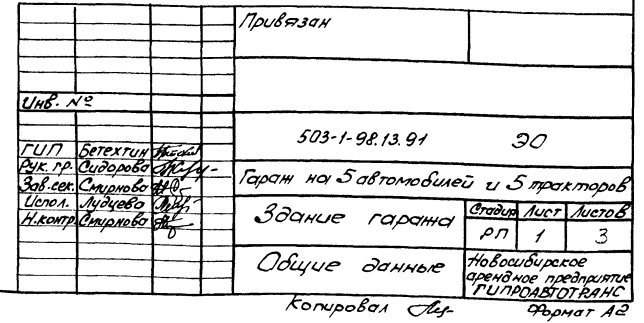 Привязан
Инв. №
503-1-98.13.91 ЭО
ГИП Бетехтин
Рук. гр. Сидорова
Зав.сек. Смирнова
Испол. Лудцева
Н.контр. Смирнова
Гараж на 5 автомобилей и 5 тракторов
Здание гаража
Стадия Лист Листов
РП 1 3
Общие данные
Новосибирское
арендное предприятие
ГИПРОАВТОТРАНС
Копировал
Формат А2